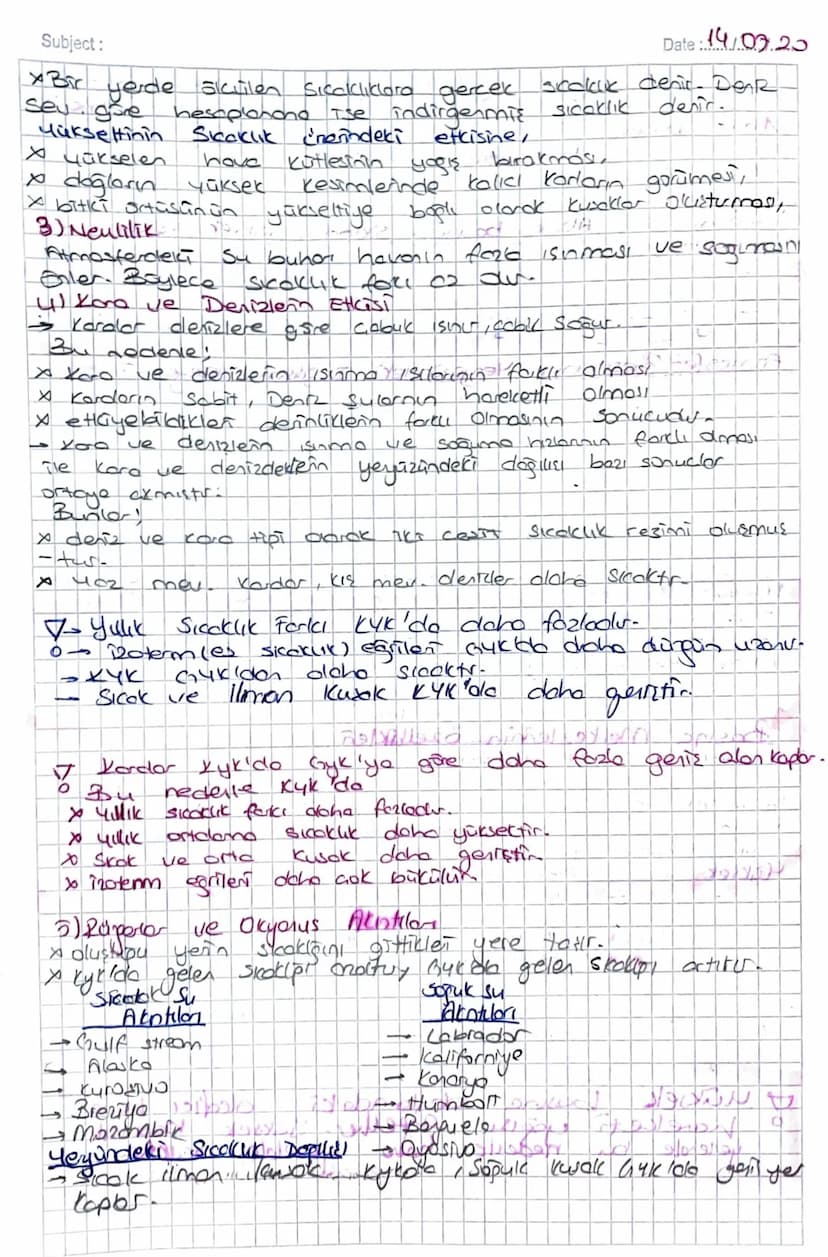 Subject :
Date : 14.09.20
x Bir yerde ölçülen sıcaklıklara gerçek sıcaklık denir. Deniz
sev. göre hesaplanana ise indirgenmiş sıcaklık denir.
Yükseltinin Sıcaklık üzerindeki etkisine,
x yükselen hava kütlesinin yağış bırakması,
x dağların yüksek kesimlerinde kalıcı karların görülmesi,
x bitki örtüsünün yükseltiye bağlı olarak kuşaklar oluşturması,
3) Nemlilik
Atmosferdeki su buharı havanın fazla ısınması ve soğumasını
önler. Böylece sıcaklık farkı az olur.
4) Kara ve Denizlerin Etkisi
→ Karalar denizlere göre çabuk ısınır, çabuk soğur.
Bu nedenle;
x Kara ve denizlerin ısınma ısılarının farklı olması
x Karaların sabit, Deniz sularının hareketli olması
x etkiyebildikleri derinliklerin farklı olmasının sonucudur.
→ Kara ve denizlerin ısınma ve soğuma hızlarının farklı olması
ile kara ve denizlerin yeryüzündeki dağılışı bazı sonuçlar
ortaya çıkmıştır.
Bunlar;
x deniz ve kara tipi olarak iki çeşit sıcaklık rejimi oluşmuş
-tur.
x yaz mev. karalar, kış mev. denizler daha sıcaktır.
→ Yıllık Sıcaklık Farkı KYK'da daha fazladır.
→ izoterm (eş sıcaklık) eğrileri GYK'da daha düzgün uzanır.
→ KYK GYK'dan daha sıcaktır.
— Sıcak ve ılıman kuşak KYK'da daha geniştir.
Karalar KYK'da GYK'ya göre daha fazla geniş alan kaplar.
Bu nedenle KYK'da
x yıllık sıcaklık farkı daha fazladır.
x yıllık ortalama sıcaklık daha yüksektir.
x Sıcak ve orta kuşak daha geniştir.
x izoterm eğrileri daha çok bükülür.
5) Rüzgarlar ve Okyanus Akıntıları
x oluştuğu yerin sıcaklığını gittikleri yere taşır.
x KYK'da gelen sıcaklığı azaltır, GYK'da gelen sıcaklığı artırır.
Sıcak Su
Akıntıları
→ Gulf stream
→ Alaska
→ Kuroşivo
→ Brezilya
→ Mozambik
Soğuk su
Akıntıları
→ Labrador
→ Kaliforniye
→ Kanarya
→ Humbolt
→ Benguela
→ Oyaşivo
Yeryüzündeki Sıcaklık Dağılışı
→ Sıcak ılıman kuşak KYK'da, Soğuk kuşak GYK'da geniş yer
kaplar.